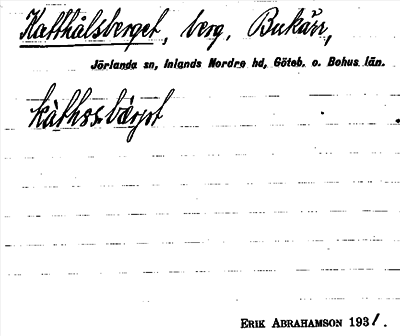 Katthålsberget, berg, Bukärr,
Jörlanda sn, Inlands Nordre hd, Göteb. o. Bohus län.
ERIK ABRAHAMSON 1931.